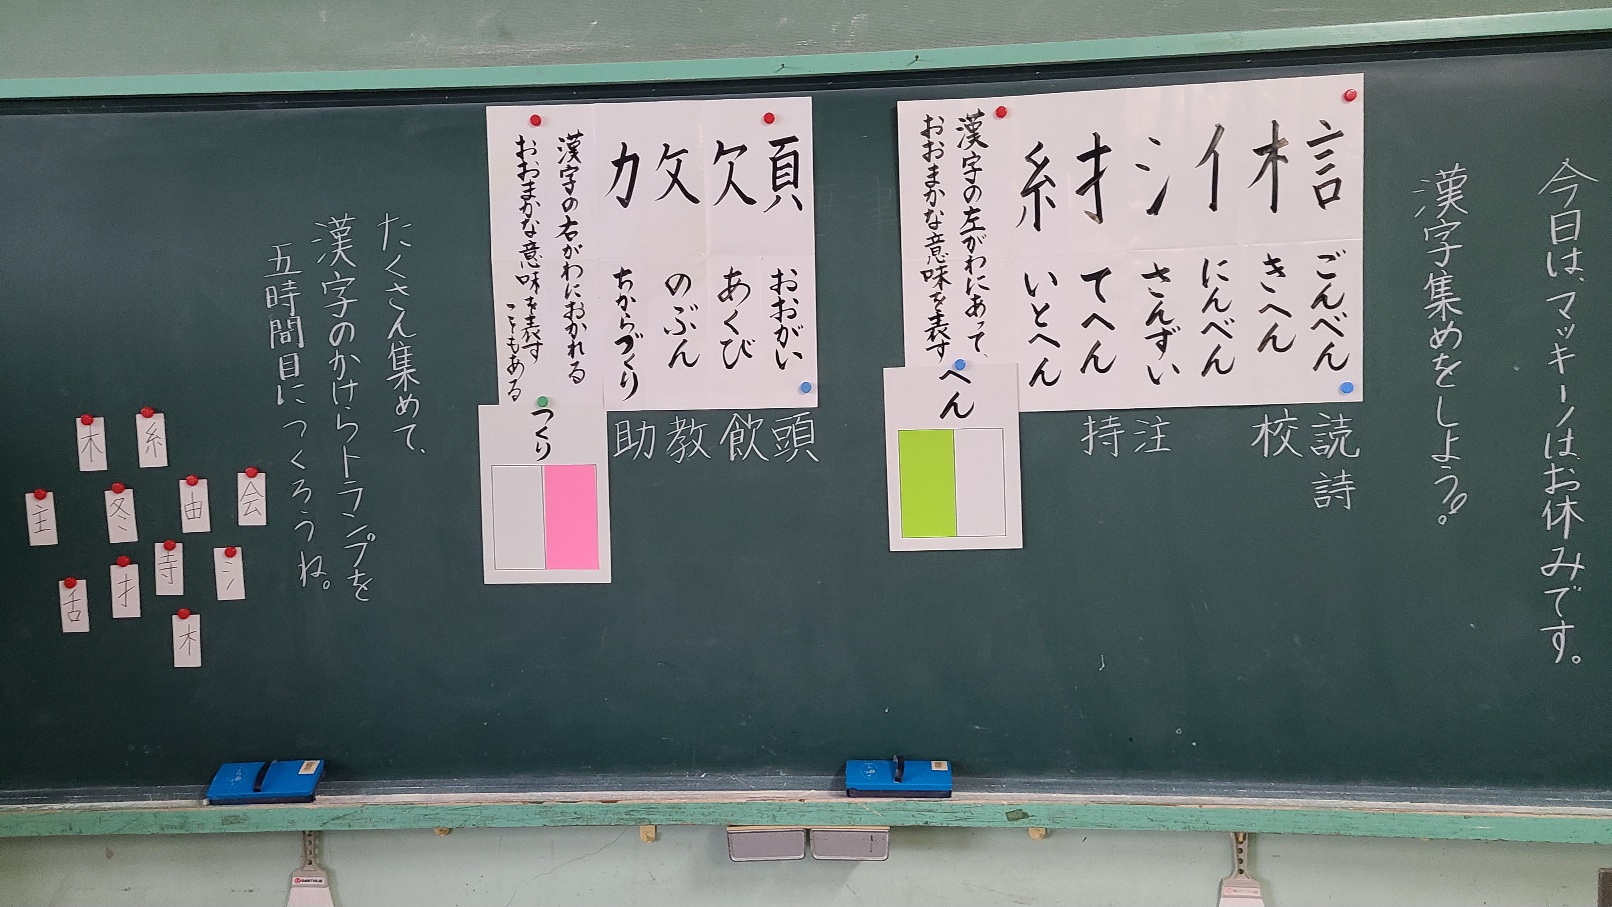 今日は、マッキーノはお休みです。
漢字集めをしよう。
言 ごんべん
木 きへん
イ にんべん
氵 さんずい
扌 てへん
糸 いとへん
漢字の左がわにあって、
おおまかな意味を表す
へん
読
詩
校
注
持
頁 おおがい
欠 あくび
攵 のぶん
力 ちからづくり
漢字の右がわにおかれる
おおまかな意味を表す
こともある
つくり
頭
飲
教
助
たくさん集めて、
漢字のかけらトランプを
五時間目につくろうね。
糸
木
会
由
冬
主
氵
寺
扌
舌
木